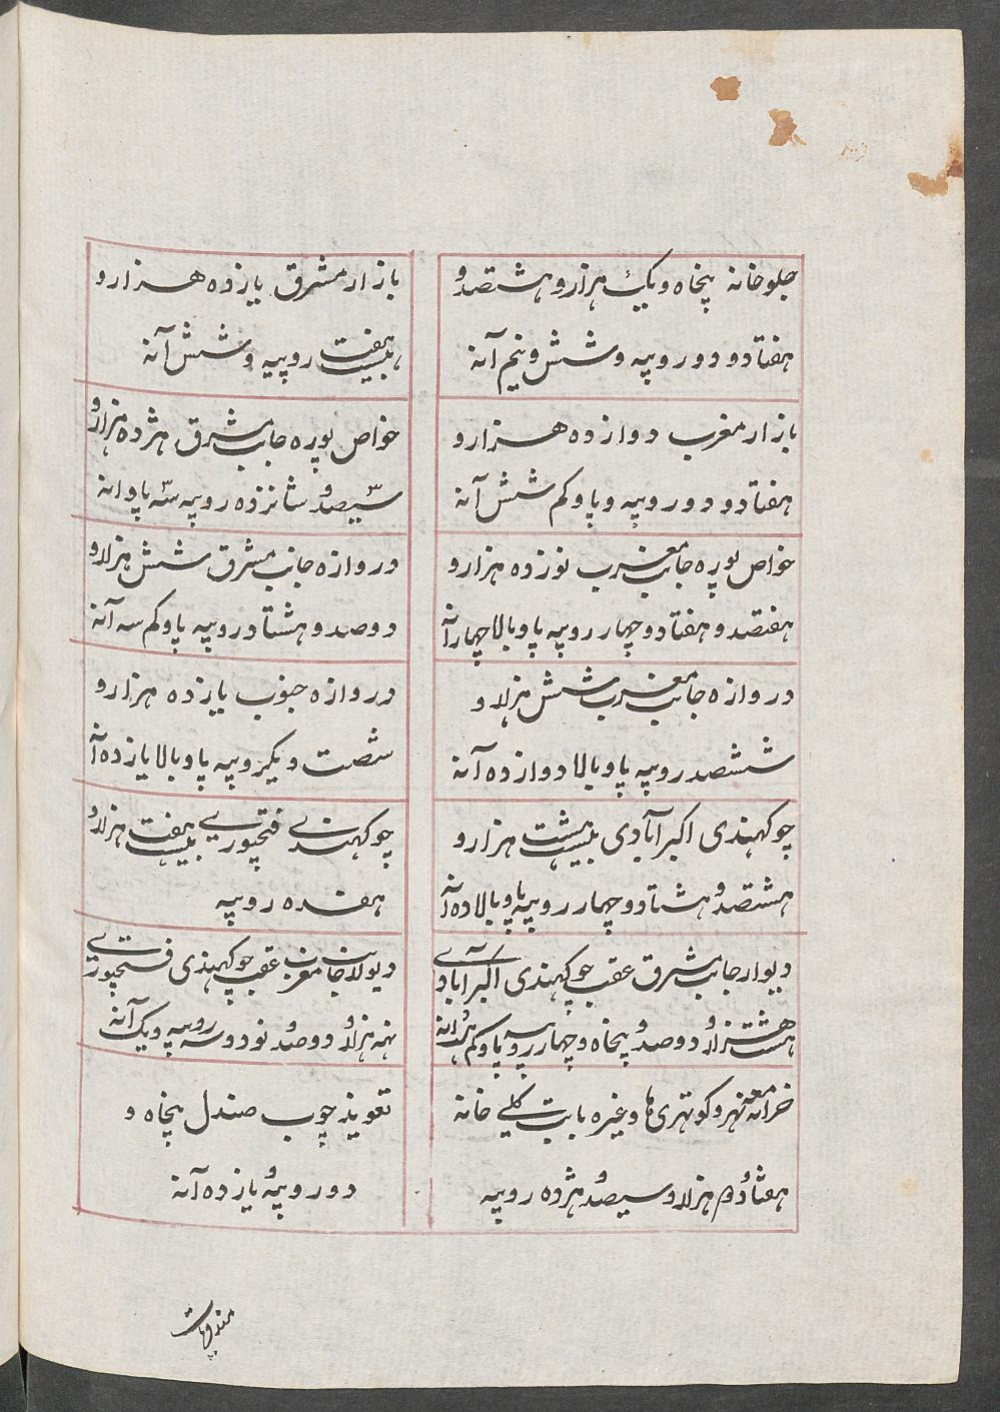 جلوخانه پنجاه ویک هزار و هشتصد و
هفتاد و دو روپیه و شش و نیم آنه
بازار مشرق یازده هزار و
بیست هفت روپیه و شش آنه
بازار مغرب دوازده هزار و
هفتاد و دو روپیه و پاو کم شش آنه
خواص پوره جانب مشرق هژده هزار و
سیصد و شانزده روپیه سه پاو انه
خواص پوره جانب مغرب نوزده هزار و
هفتصد و هفتاد و چهار روپیه پاو بالا چهار آنه
دروازه جانب مشرق شش هزار و
دوصد و هشتاد روپیه پاو کم سه آنه
دروازه جانب مغرب شش هزار و
ششصد روپیه پاو بالا دوازده آنه
دروازه جنوب یازده هزار و
شصت و یکروپیه پاو بالا یازده آنه
چوکهندی اکبرآبادی بیست هشت هزار و
هشتصد و هشتاد و چهار روپیه پاو بالا ده آنه
چوکهندی فتحپوری بیست هفت هزار و
هفده روپیه
دیوار جانب مشرق عقب چوکهندی اکبرآبادی
هشت هزار و دوصد و پنجاه و چهار روپیه پاو کم آنه
دیوار جانب مغرب عقب چوکهندی فتحپوری
نه هزار و دوصد و نود و سه روپیه و یک آنه
خزانه معه نهر و کوتهری ها وغیره بابت کلی خانه
هفتاد و دوم هزار و سیصد و هژده روپیه
تعویذ چوب صندل پنجاه و
دو روپیه و یازده آنه